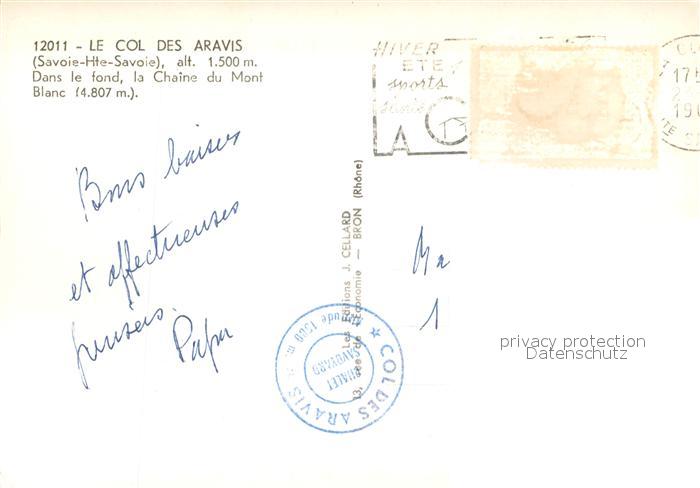 12011 - LE COL DES ARAVIS
(Savoie-Hte-Savoie), alt. 1.500 m.
Dans le fond, la Chaîne du Mont
Blanc (4.807 m.).
HIVER
ETE
sports
LA C
17
19
Bons baisers
et affectueuses
pensées.
Papa
Les Editions J. CELLARD
13, rue de l'Economie — BRON (Rhône)
COL DES ARAVIS
Altitude 1500 m.
CHALET
SAVOYARD
Ma
1
privacy protection
Datenschutz